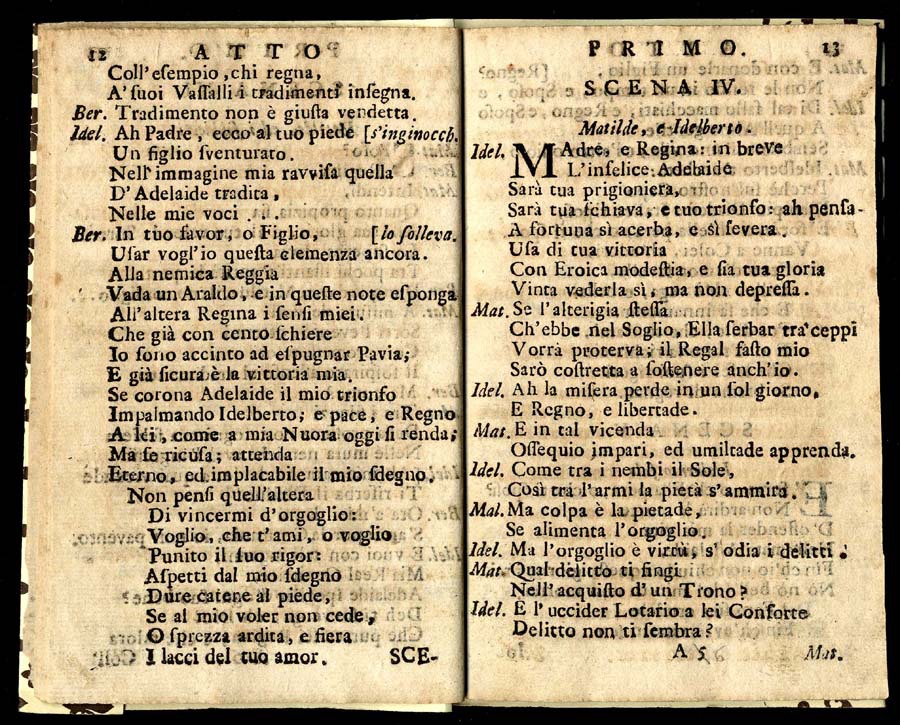 12 ATTO
Coll' esempio, chi regna,
A' suoi Vassalli i tradimenti insegna.
Ber. Tradimento non è giusta vendetta.
Idel. Ah Padre, ecco al tuo piede [s'inginocch.
Un figlio sventurato.
Nell' immagine mia ravvisa quella
D' Adelaide tradita,
Nelle mie voci ...
Ber. In tuo favor, o Figlio, [lo solleva.
Usar vogl' io questa clemenza ancora.
Alla nemica Reggia
Vada un Araldo, e in queste note esponga
All' altera Regina i sensi miei.
Che già con cento schiere
Io sono accinto ad espugnar Pavia;
E già sicura è la vittoria mia.
Se corona Adelaide il mio trionfo
Impalmando Idelberto; e pace, e Regno
A lei, come a mia Nuora oggi si renda;
Ma se ricusa; attenda
Eterno, ed implacabile il mio sdegno.
Non pensi quell' altera
Di vincermi d'orgoglio:
Voglio, che t' ami, o voglio
Punito il suo rigor:
Aspetti dal mio sdegno
Dure catene al piede,
Se al mio voler non cede,
O sprezza ardita, e fiera
I lacci del tuo amor. SCE-
PRIMO. 13
SCENA IV.
Matilde, e Idelberto.
Idel. MAdre, e Regina: in breve
L'infelice Adelaide
Sarà tua prigioniera,
Sarà tua schiava, e tuo trionfo: ah pensa-
A fortuna sì acerba, e sì severa.
Usa di tua vittoria
Con Eroica modestia, e sia tua gloria
Vinta vederla sì, ma non depressa.
Mat. Se l'alterigia stessa
Ch'ebbe nel Soglio, Ella serbar tra' ceppi
Vorrà proterva; il Regal fasto mio
Sarò costretta a sostenere anch'io.
Idel. Ah la misera perde in un sol giorno,
E Regno, e libertade.
Mat. E in tal vicenda
Ossequio impari, ed umiltade apprenda.
Idel. Come tra i nembi il Sole,
Così tra l'armi la pietà s'ammira.
Mal. Ma colpa è la pietade,
Se alimenta l'orgoglio
Idel. Ma l'orgoglio è virtù, s' odia i delitti.
Mat. Qual delitto ti fingi
Nell'acquisto d'un Trono?
Idel. E l'uccider Lotario a lei Consorte
Delitto non ti sembra?
A 5 Mat.